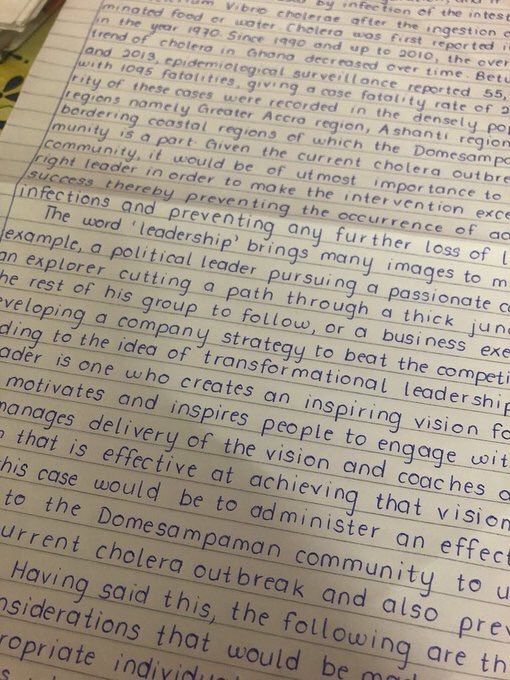 Vibrio cholerae by infection of the intes
minated food or water. Cholera was first reported i
in the year 1970. Since 1990 and up to 2010, the over
trend of cholera in Ghana decreased over time. Betw
and 2013, epidemiological surveillance reported 55,
with 1095 fatalities, giving a case fatality rate of 2
rity of these cases were recorded in the densely po
regions namely Greater Accra region, Ashanti region
bordering coastal regions of which the Domesampa
munity is a part. Given the current cholera outbre
community, it would be of utmost importance to
right leader in order to make the intervention exce
success thereby preventing the occurrence of ad
infections and preventing any further loss of l
The word 'leadership' brings many images to m
example, a political leader pursuing a passionate c
an explorer cutting a path through a thick jun
he rest of his group to follow, or a business exe
eveloping a company strategy to beat the competi
ding to the idea of transformational leadership
ader is one who creates an inspiring vision fo
motivates and inspires people to engage wit
manages delivery of the vision and coaches a
that is effective at achieving that vision
his case would be to administer an effect
to the Domesampaman community to u
urrent cholera outbreak and also prev
Having said this, the following are th
nsiderations that would be mad
ropriate individu